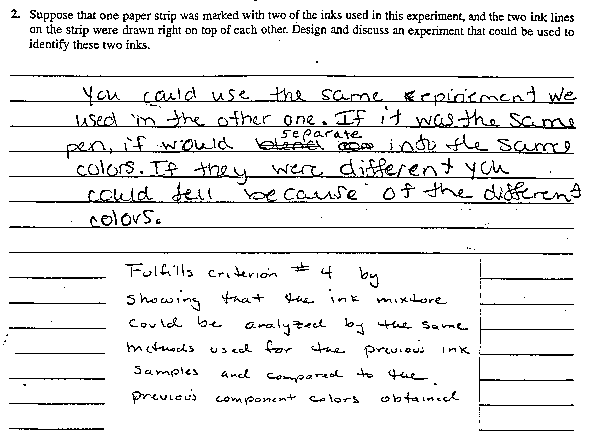 2. Suppose that one paper strip was marked with two of the inks used in this experiment, and the two ink lines
on the strip were drawn right on top of each other. Design and discuss an experiment that could be used to
identify these two inks.
You could use the same expiriement we
used in the other one. If it was the same
pen, it would separate into the same
colors. If they were different you
could tell because of the different
colors.
Fulfills criterion # 4 by
showing that the ink mixture
could be analyzed by the same
methods used for the previous ink
samples and compared to the
previous component colors obtained